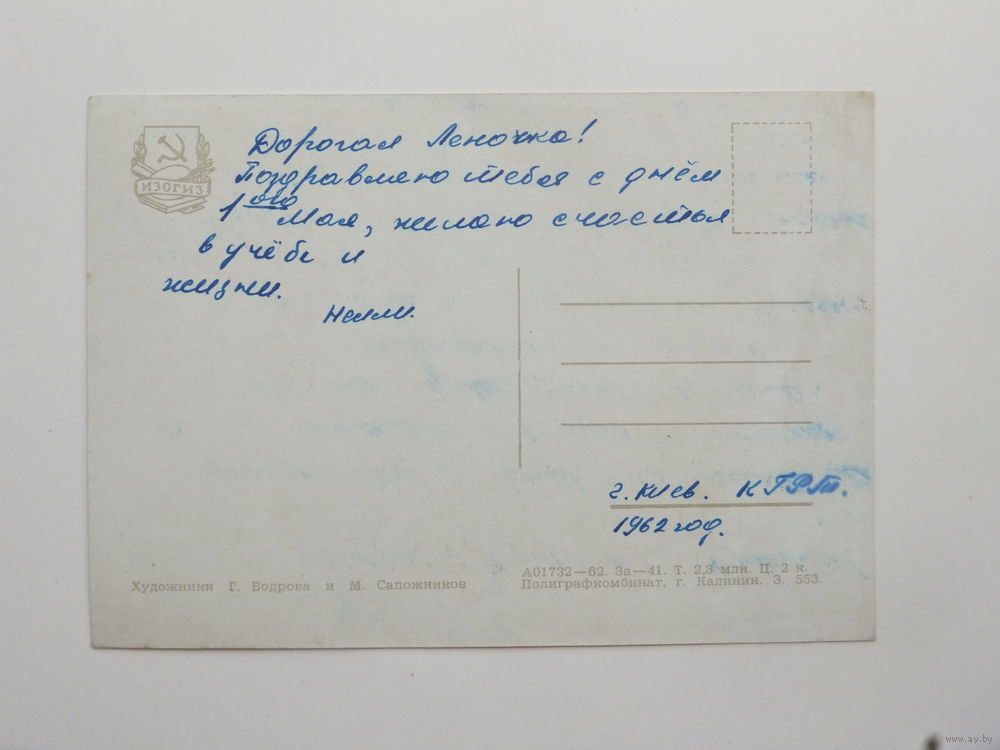 ИЗОГИЗ
Дорогая Леночка!
Поздравляю тебя с днём
1ого Мая, желаю счастья
в учёбе и
жизни.
Нелли.
г. Киев. КГРТ.
1962 год.
Художники Г. Водрова и М. Сапожников
А01732—62. За—41. Т. 2,3 млн. Ц. 2 к.
Полиграфкомбинат, г. Калинин. З. 553.
www.ay.by